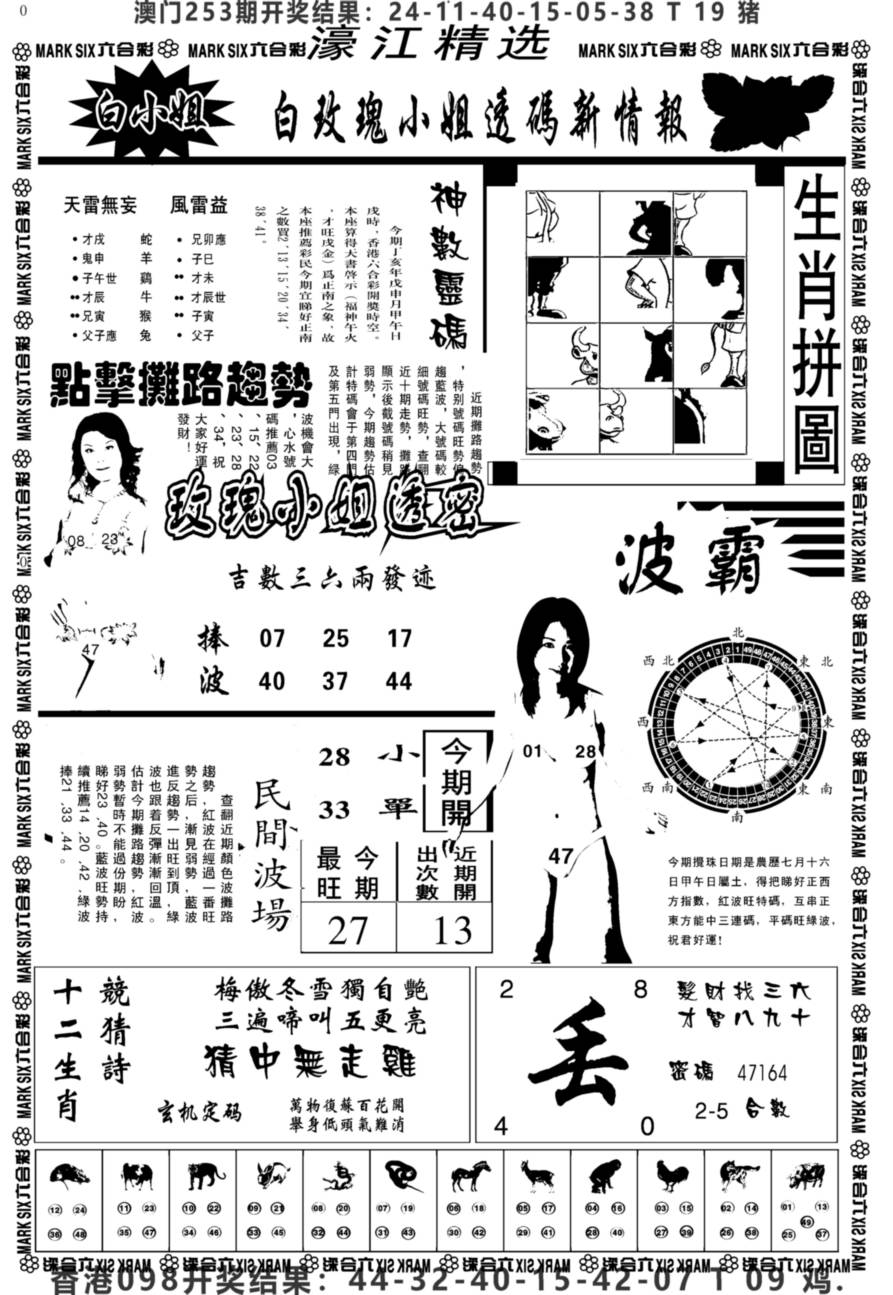 0
澳门253期开奖结果：24-11-40-15-05-38 T 19 猪
MARK SIX六合彩 MARK SIX六合彩 濠江精选 MARK SIX六合彩 MARK SIX六合彩
白小姐
白玫瑰小姐透碼新情報
天雷無妄 風雷益
•才戌 蛇 •兄卯應
•鬼申 羊 •子巳
●子午世 鷄 ••才未
••才辰 牛 ••才辰世
••兄寅 猴 ••子寅
•父子應 兔 •父子
神數靈碼
今期丁亥年戊申月甲午日
戌時，香港六合彩開獎時空。
本座算得天書啓示（福神午火
，才旺戌金）爲正南之象，故
本座推薦彩民今期宜睇好正南
之數買2‘13‘15‘20‘34‘
38‘41°
生肖拼圖
點擊攤路趨勢
近期攤路趨勢
，特别號碼旺勢偏
趨藍波，大號碼較
細號碼旺勢，查翻
近十期走勢，攤路
顯示後截號碼稍見
弱勢，今期趨勢估
計特碼會于第四門
及第五門出現，綠
波機會大
，心水號
碼推薦03
、15、22
、23、28
、34，祝
大家好運
發財！
08 23
47
玫瑰小姐透密
吉數三六兩發迹
捧 07 25 17
波 40 37 44
波霸
北
西北 東北
西 東
西南 東南
南
01 28
47
今期攪珠日期是農歷七月十六
日甲午日屬土，得把睇好正西
方指數，紅波旺特碼，互串正
東方能中三連碼，平碼旺綠波，
祝君好運！
民間波場
查翻近期顏色波攤路
趨勢，紅波在經過一番旺
勢之后，漸見弱勢，藍波
進反趨勢一出旺到頂，綠
波也跟着反彈漸漸回溫。
估計今期攤路趨勢，紅波
弱勢暫時不能過份期盼，
睇好23、40。藍波旺勢持
續推薦14、20、42，綠波
捧21、33、44。
28 小
33 單
今期開
今期最旺
近期開出次數
27 13
十二生肖
競猜詩
梅傲冬雪獨自艷
三遍啼叫五更亮
猜中無走雞
玄机定码
萬物復蘇百花開
舉身低頭氣難消
2 8
丢
4 0
髮財找三六
才智八九十
密碼 47164
2-5 合數
12 24 11 23 10 22 09 21 08 20 07 19 06 18 05 17 04 16 03 15 02 14 01 13
49
36 48 35 47 34 46 33 45 32 44 31 43 30 42 29 41 28 40 27 39 26 38 25 37
香港098开奖结果：44-32-40-15-42-07 T 09 鸡.